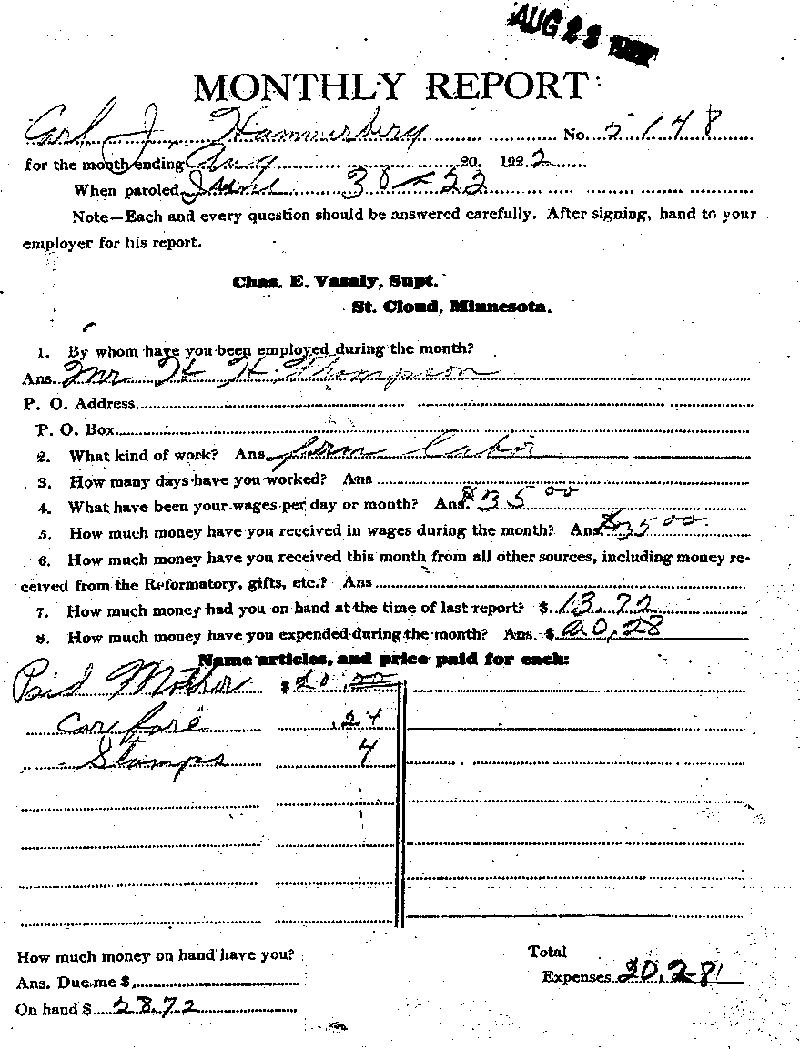 AUG 23 1922
MONTHLY REPORT
Carl J. Hammerberg No. 5148
for the month ending Aug 20, 1922
When paroled June 30 - 22
Note—Each and every question should be answered carefully. After signing, hand to your
employer for his report.
Chas. E. Vasaly, Supt.
St. Cloud, Minnesota.
1. By whom have you been employed during the month?
Ans. Mr H H. Thompson
P. O. Address
P. O. Box
2. What kind of work? Ans farm labor
3. How many days have you worked? Ans
4. What have been your wages per day or month? Ans. $35 00
5. How much money have you received in wages during the month? Ans $35 00
6. How much money have you received this month from all other sources, including money re-
ceived from the Reformatory, gifts, etc.? Ans
7. How much money had you on hand at the time of last report? $ 13.72
8. How much money have you expended during the month? Ans. $ 20.28
Name articles, and price paid for each:
Paid Mother $ 20.00
Carfare .24
Stamps 4
How much money on hand have you?
Ans. Due me $
On hand $ 28.72
Total
Expenses 20.28